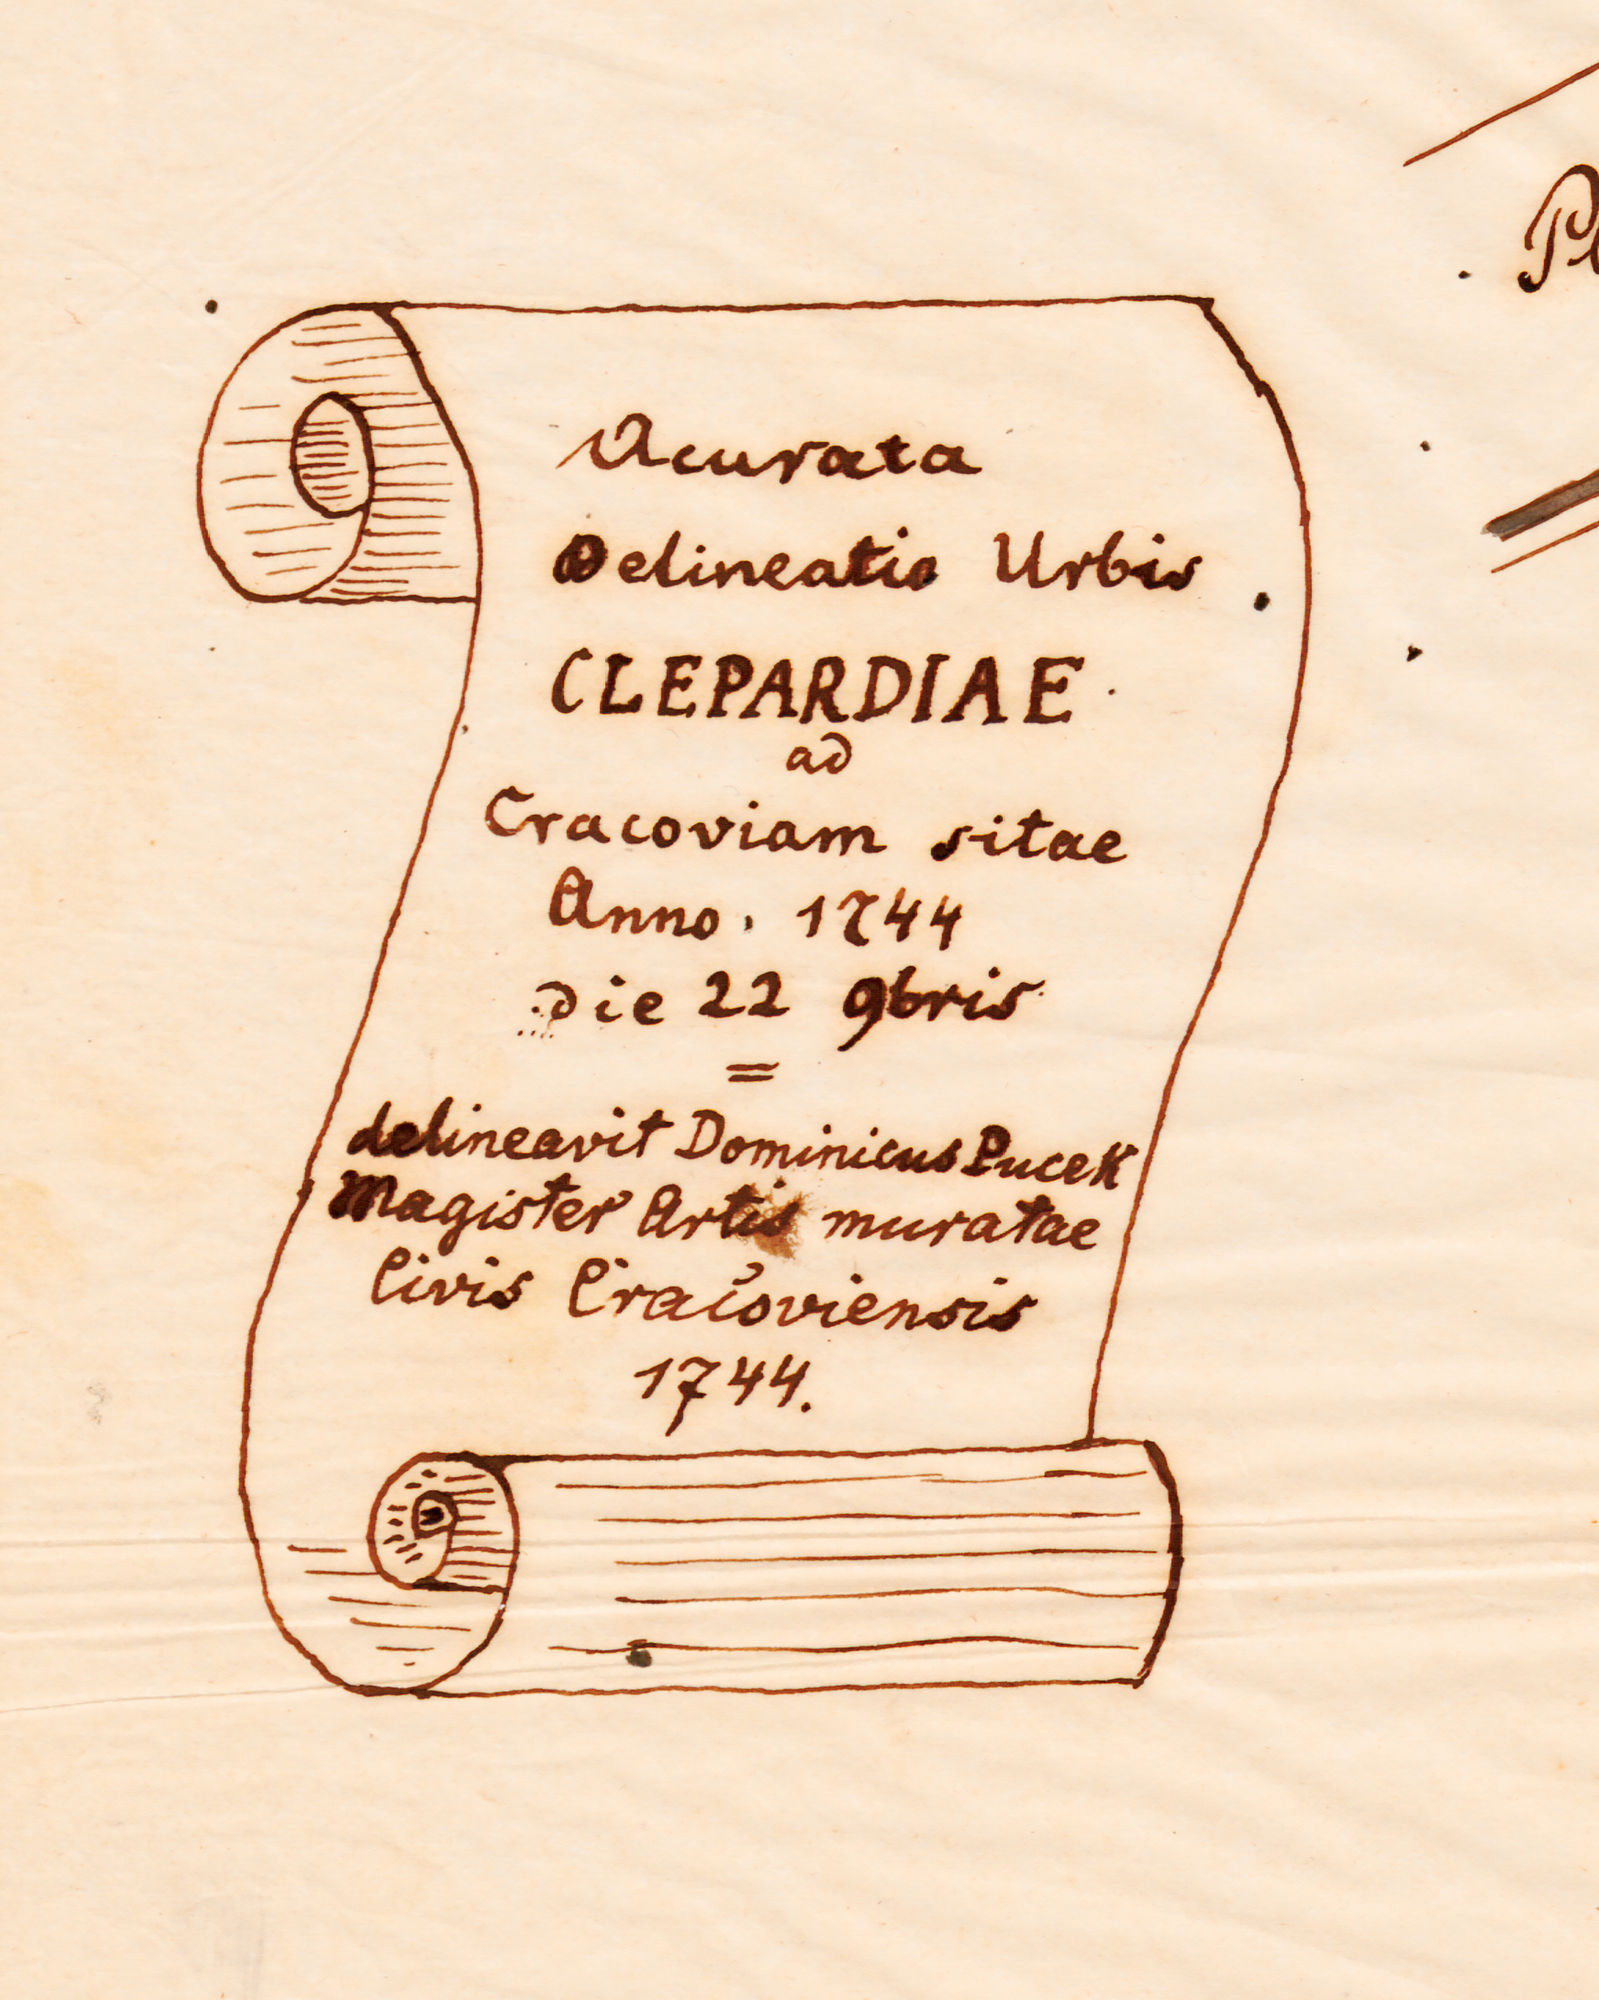 Acurata
Delineatio Urbis
CLEPARDIAE
ad
Cracoviam sitae
Anno. 1744
die 22 9bris
=
delineavit Dominicus Pucek
Magister Artis muratae
Civis Cracoviensis
1744.